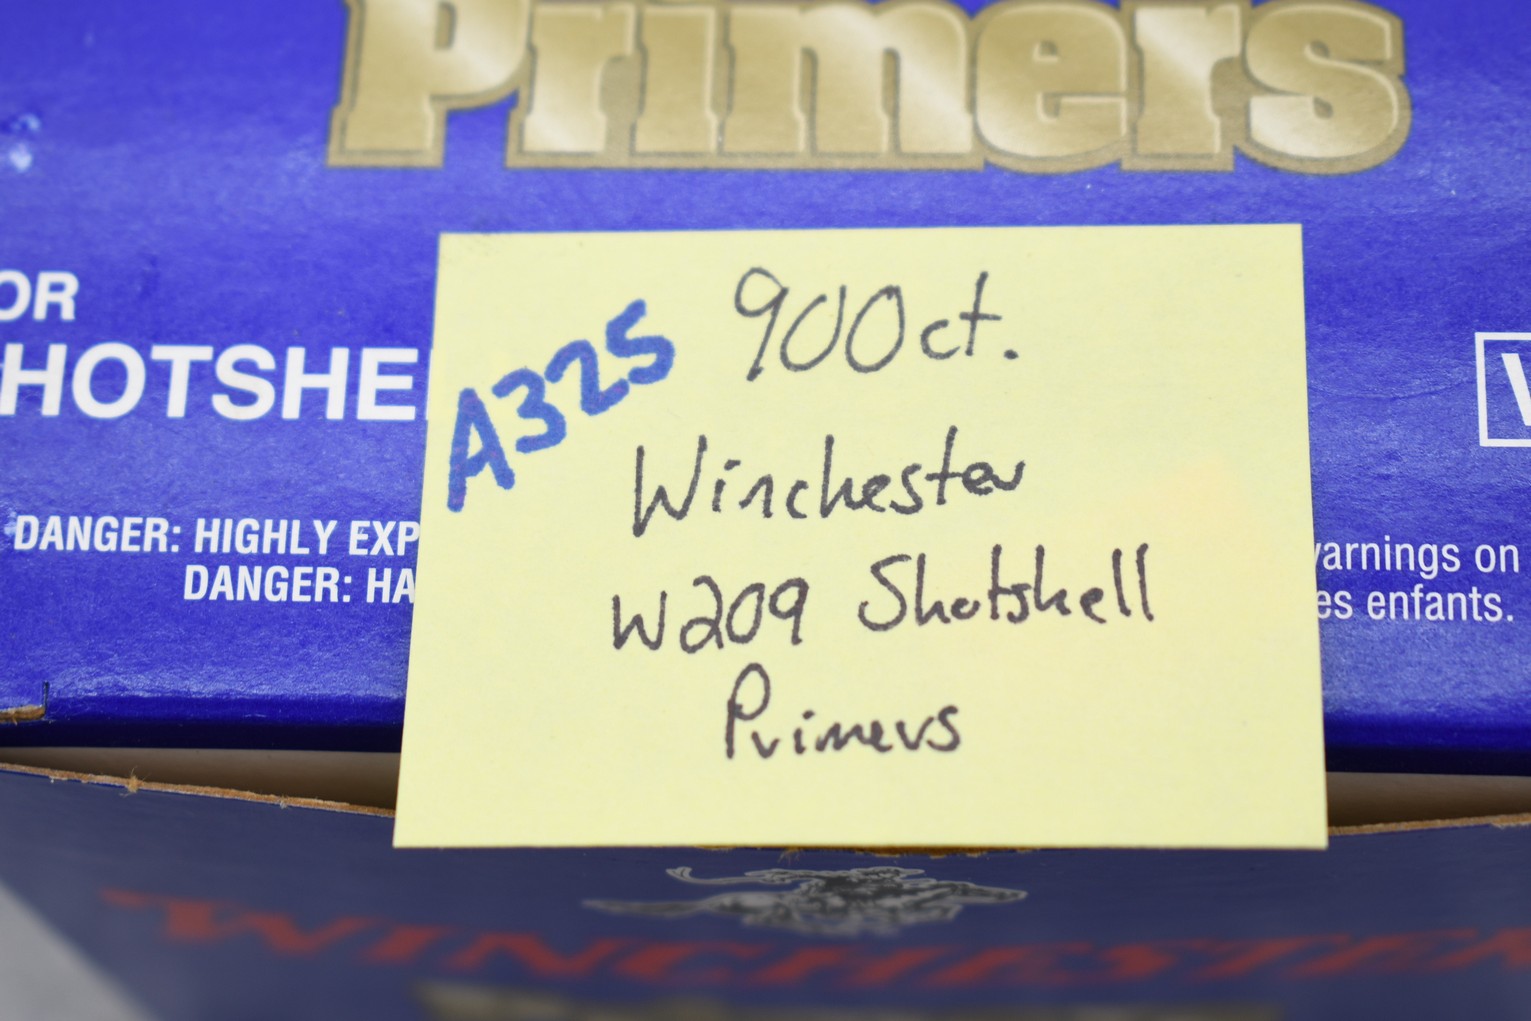 Primers
OR
HOTSHE
A325
900ct.
Winchester
W209 Shotshell
Primers
DANGER: HIGHLY EXP
DANGER: HA
arnings on
es enfants.
WINCHESTER